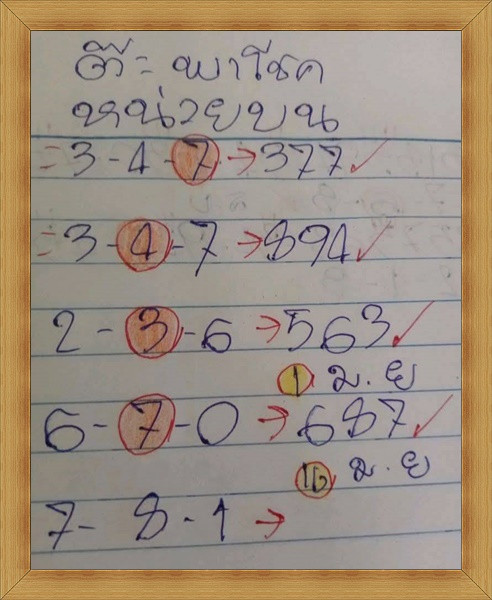 ต๊ะ พาโชค
หน่วยบน
=3-4-7→377✓
=3-4-7→894✓
2-3-6→563✓
1 ม.ย
6-7-0→687✓
16 ม.ย
7-8-1→